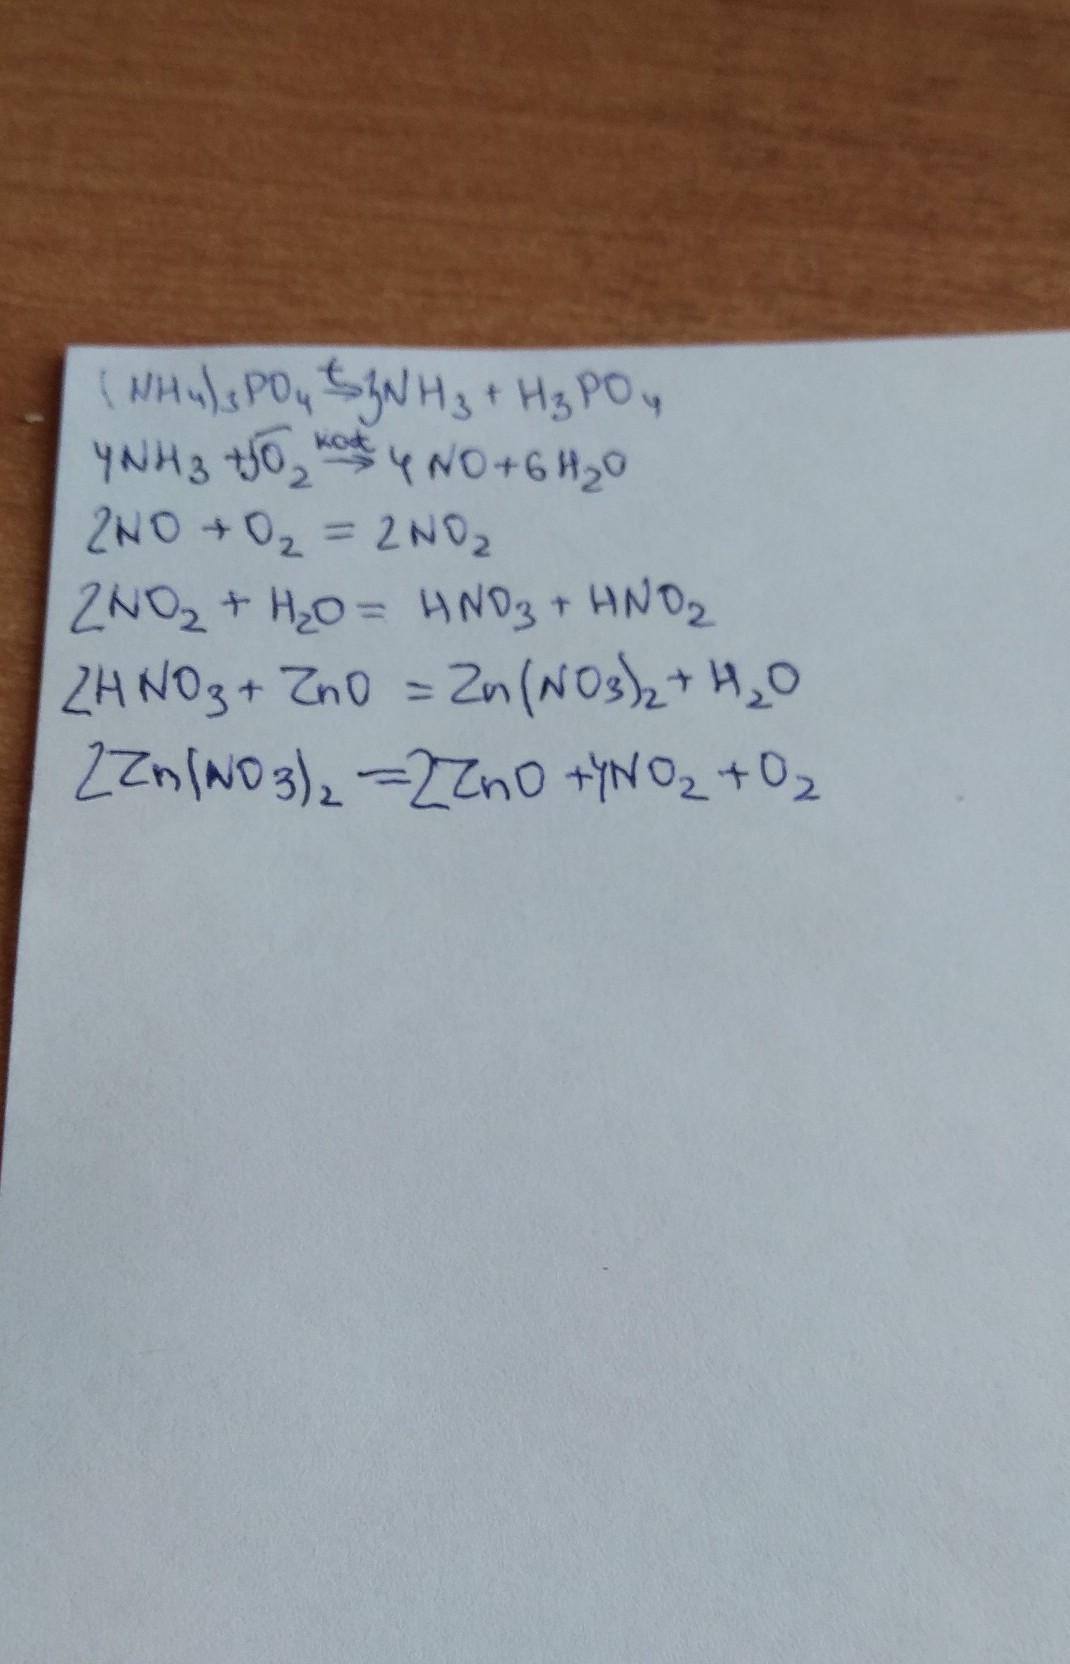 (NH₄)₃PO₄ t→ 3NH₃ + H₃PO₄
4NH₃ + 5O₂ кат→ 4NO + 6H₂O
2NO + O₂ = 2NO₂
2NO₂ + H₂O = HNO₃ + HNO₂
2HNO₃ + ZnO = Zn(NO₃)₂ + H₂O
2Zn(NO₃)₂ = 2ZnO + 4NO₂ + O₂